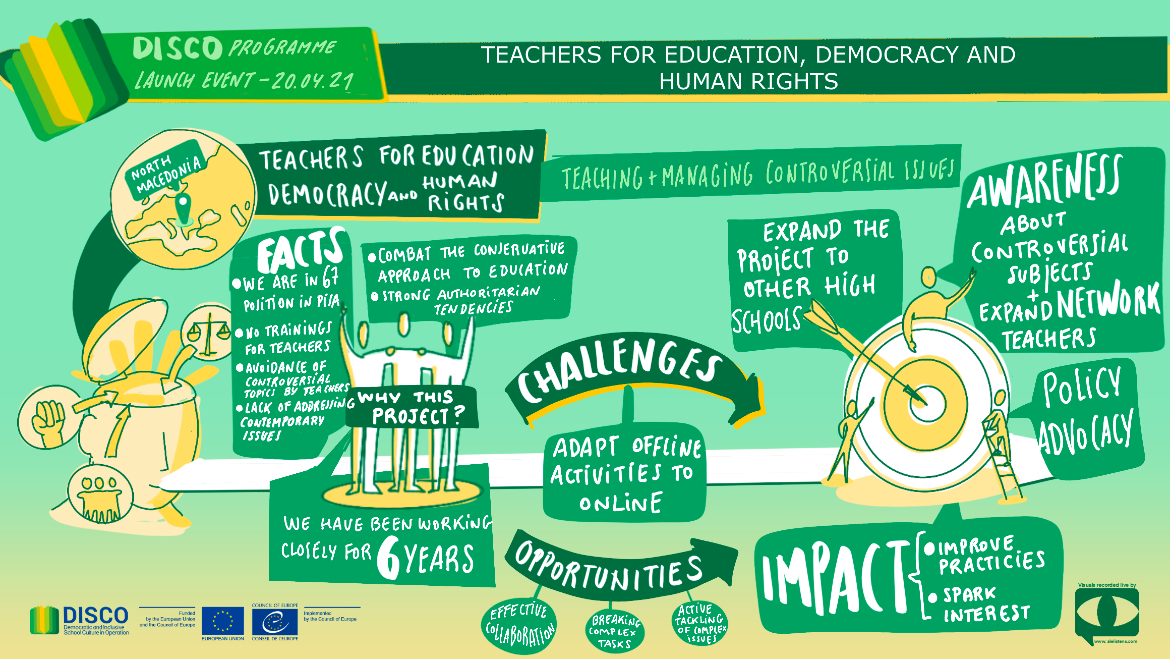 DISCO PROGRAMME
LAUNCH EVENT - 20.04.21
TEACHERS FOR EDUCATION, DEMOCRACY AND
HUMAN RIGHTS
NORTH
MACEDONIA
TEACHERS FOR EDUCATION
DEMOCRACY AND HUMAN
RIGHTS
TEACHING + MANAGING CONTROVERSIAL ISSUES
FACTS
• WE ARE IN 67
POSITION IN PISA
• NO TRAININGS
FOR TEACHERS
• AVOIDANCE OF
CONTROVERSIAL
TOPICS BY TEACHERS
• LACK OF ADDRESSING
CONTEMPORARY
ISSUES
• COMBAT THE CONSERVATIVE
APPROACH TO EDUCATION
• STRONG AUTHORITARIAN
TENDENCIES
WHY THIS
PROJECT?
WE HAVE BEEN WORKING
CLOSELY FOR 6 YEARS
CHALLENGES
ADAPT OFFLINE
ACTIVITIES TO
ONLINE
OPPORTUNITIES
EFFECTIVE
COLLABORATION
BREAKING
COMPLEX
TASKS
ACTIVE
TACKLING
OF COMPLEX
ISSUES
EXPAND THE
PROJECT TO
OTHER HIGH
SCHOOLS
AWARENESS
ABOUT
CONTROVERSIAL
SUBJECTS
+
EXPAND NETWORK
TEACHERS
POLICY
ADVOCACY
IMPACT
• IMPROVE
PRACTICIES
• SPARK
INTEREST
DISCO
Democratic and Inclusive
School Culture in Operation
Funded
by the European Union
and the Council of Europe
EUROPEAN UNION
COUNCIL OF EUROPE
CONSEIL DE L'EUROPE
Implemented
by the Council of Europe
Visuals recorded live by